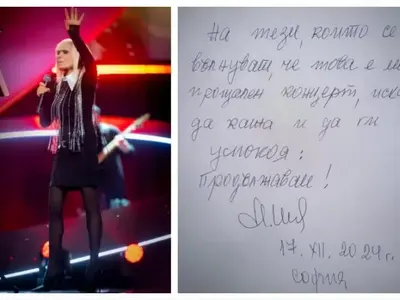 На тези, които се
вълнуват, че това е
прощален концерт,
да кажа и да ги
успокоя:
Продължавам!
17. XII. 2024г.
София